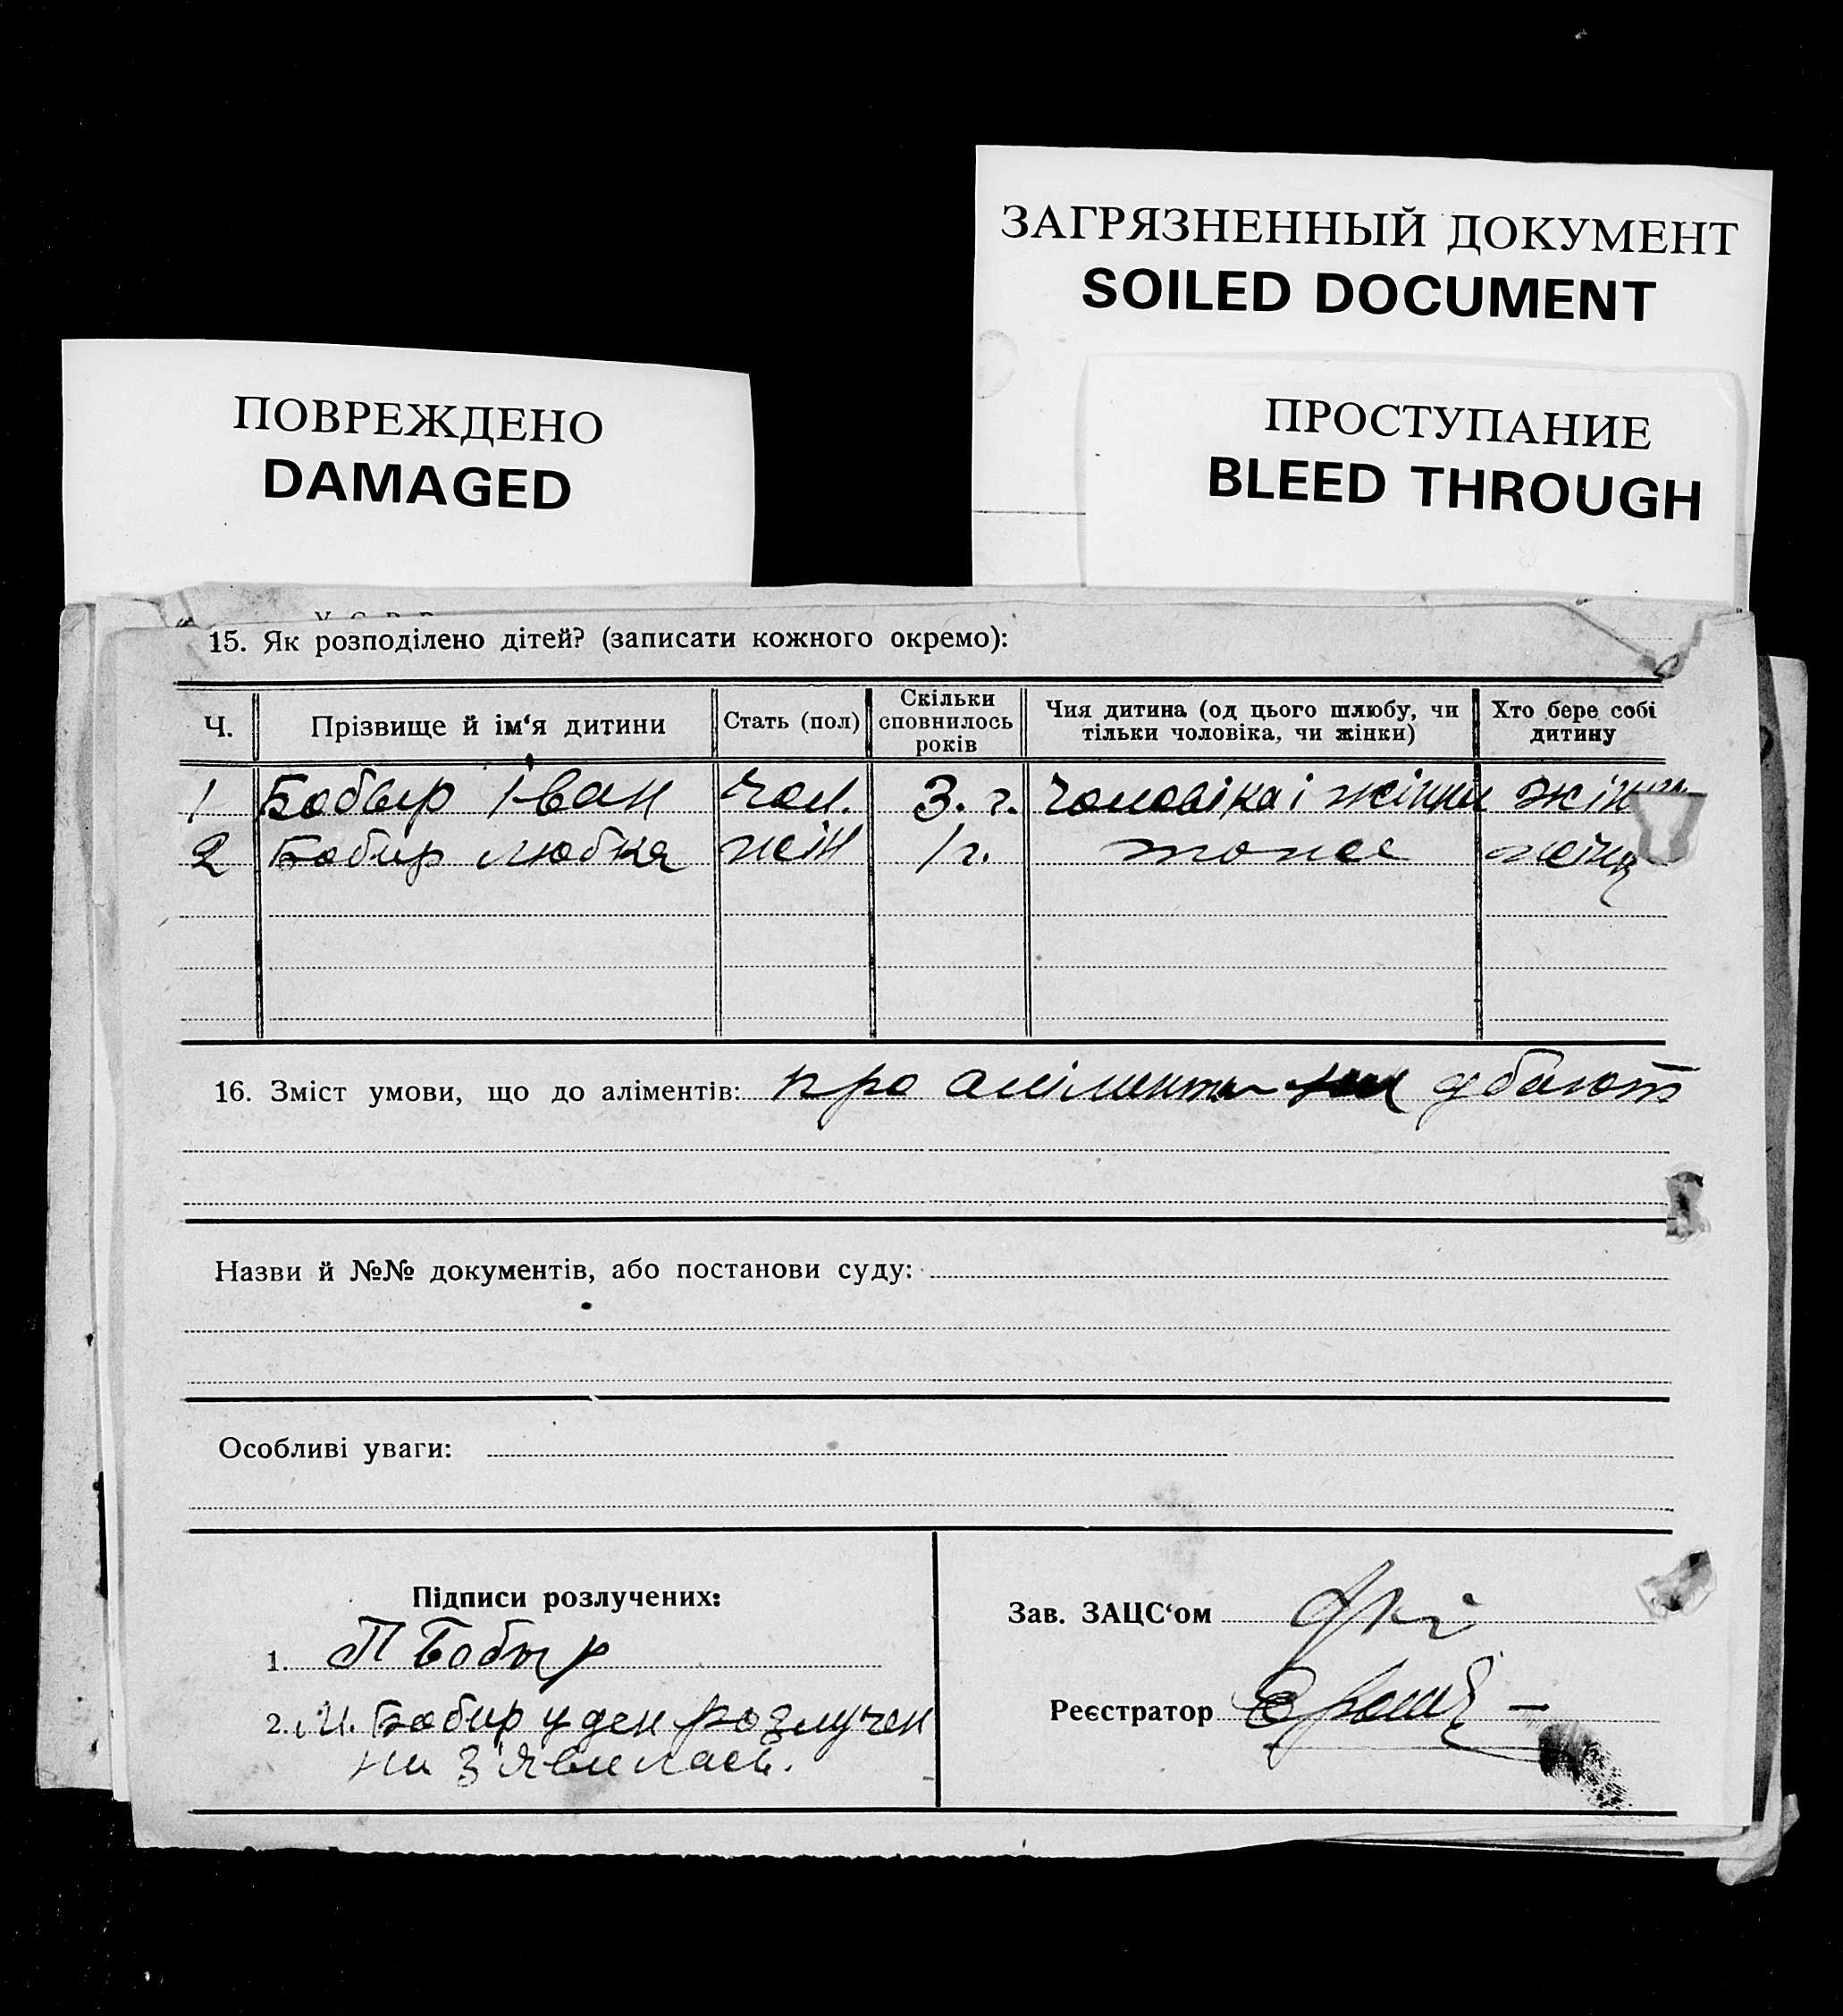 ЗАГРЯЗНЕННЫЙ ДОКУМЕНТ
SOILED DOCUMENT
ПОВРЕЖДЕНО
DAMAGED
ПРОСТУПАНИЕ
BLEED THROUGH
15. Як розподілено дітей? (записати кожного окремо):
Ч. Прізвище й ім‘я дитини Стать (пол) Скільки сповнилось років Чия дитина (од цього шлюбу, чи тільки чоловіка, чи жінки) Хто бере собі дитину
1 Бобыр Іван чол. 3. г. чоловіка і жінки
2 Бобир Любка жін 1 г. тоже
16. Зміст умови, що до аліментів: про аліменти дбають
Назви й №№ документів, або постанови суду:
Особливі уваги:
Підписи розлучених:
1. П Бобыр
2. М. Бобир у ден розлучен
ни зʼявилась.
Зав. ЗАЦС‘ом
Реєстратор